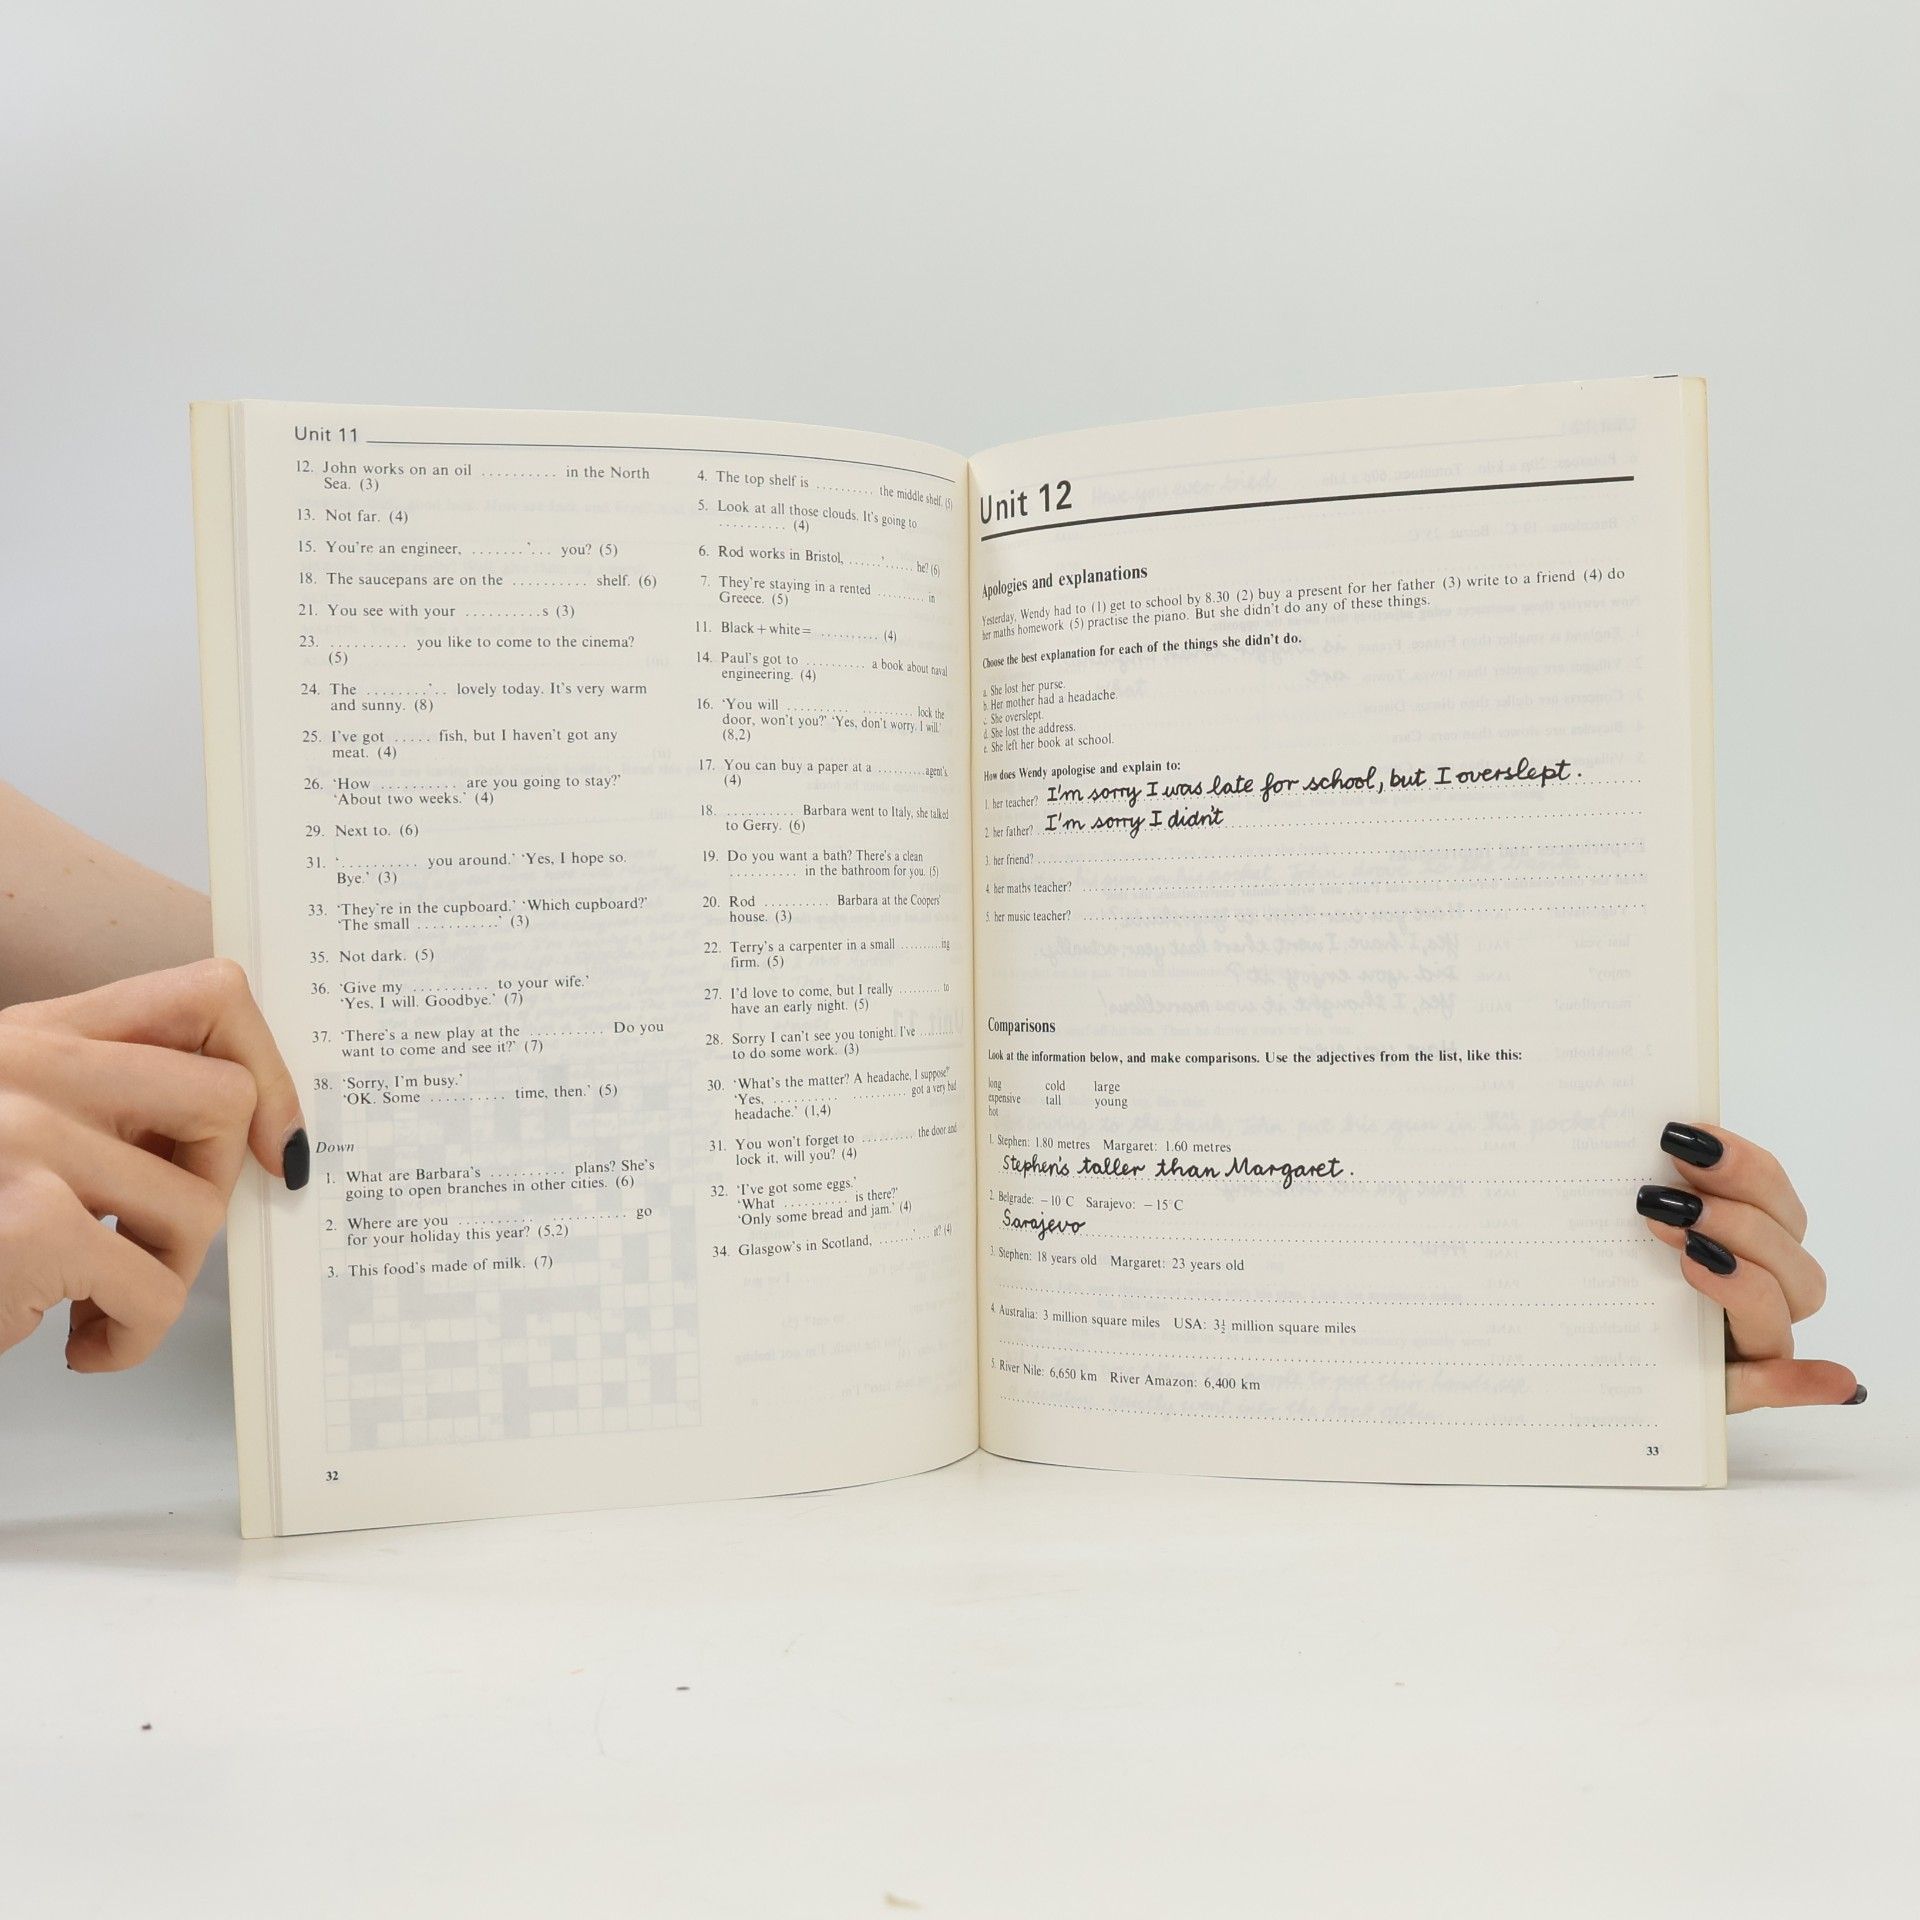 Unit 11
12. John works on an oil .......... in the North
Sea. (3)
13. Not far. (4)
15. You're an engineer, .......'... you? (5)
18. The saucepans are on the .......... shelf. (6)
21. You see with your ..........s (3)
23. .......... you like to come to the cinema?
(5)
24. The ........'.. lovely today. It's very warm
and sunny. (8)
25. I've got ..... fish, but I haven't got any
meat. (4)
26. 'How .......... are you going to stay?'
'About two weeks.' (4)
29. Next to. (6)
31. '.......... you around.' 'Yes, I hope so.
Bye.' (3)
33. 'They're in the cupboard.' 'Which cupboard?'
'The small ..........' (3)
35. Not dark. (5)
36. 'Give my .......... to your wife.'
'Yes, I will. Goodbye.' (7)
37. 'There's a new play at the .......... Do you
want to come and see it?' (7)
38. 'Sorry, I'm busy.'
'OK. Some .......... time, then.' (5)
Down
1. What are Barbara's .......... plans? She's
going to open branches in other cities. (6)
2. Where are you .......... .......... go
for your holiday this year? (5,2)
3. This food's made of milk. (7)
4. The top shelf is .......... the middle shelf. (5)
5. Look at all those clouds. It's going to
.......... (4)
6. Rod works in Bristol, ......'...... he? (6)
7. They're staying in a rented .......... in
Greece. (5)
11. Black+white= .......... (4)
14. Paul's got to .......... a book about naval
engineering. (4)
16. 'You will .......... .......... lock the
door, won't you?' 'Yes, don't worry. I will.'
(8,2)
17. You can buy a paper at a ..........agent's.
(4)
18. .......... Barbara went to Italy, she talked
to Gerry. (6)
19. Do you want a bath? There's a clean
.......... in the bathroom for you. (5)
20. Rod .......... Barbara at the Coopers'
house. (3)
22. Terry's a carpenter in a small ..........ing
firm. (5)
27. I'd love to come, but I really .......... to
have an early night. (5)
28. Sorry I can't see you tonight. I've ..........
to do some work. (3)
30. 'What's the matter? A headache, I suppose?'
'Yes, .......... .......... got a very bad
headache.' (1,4)
31. You won't forget to .......... the door and
lock it, will you? (4)
32. 'I've got some eggs.'
'What .......... is there?'
'Only some bread and jam.' (4)
34. Glasgow's in Scotland, .......'... it? (4)
32
Unit 12
Apologies and explanations
Yesterday, Wendy had to (1) get to school by 8.30 (2) buy a present for her father (3) write to a friend (4) do
her maths homework (5) practise the piano. But she didn't do any of these things.
Choose the best explanation for each of the things she didn't do.
a. She lost her purse.
b. Her mother had a headache.
c. She overslept.
d. She lost the address.
e. She left her book at school.
How does Wendy apologise and explain to:
1. her teacher? I'm sorry I was late for school, but I overslept.
2. her father? I'm sorry I didn't
3. her friend?
4. her maths teacher?
5. her music teacher?
Comparisons
Look at the information below, and make comparisons. Use the adjectives from the list, like this:
long cold large
expensive tall young
hot
1. Stephen: 1.80 metres Margaret: 1.60 metres
Stephen's taller than Margaret.
2. Belgrade: −10°C Sarajevo: −15°C
Sarajevo
3. Stephen: 18 years old Margaret: 23 years old
4. Australia: 3 million square miles USA: 3½ million square miles
5. River Nile: 6,650 km River Amazon: 6,400 km
33